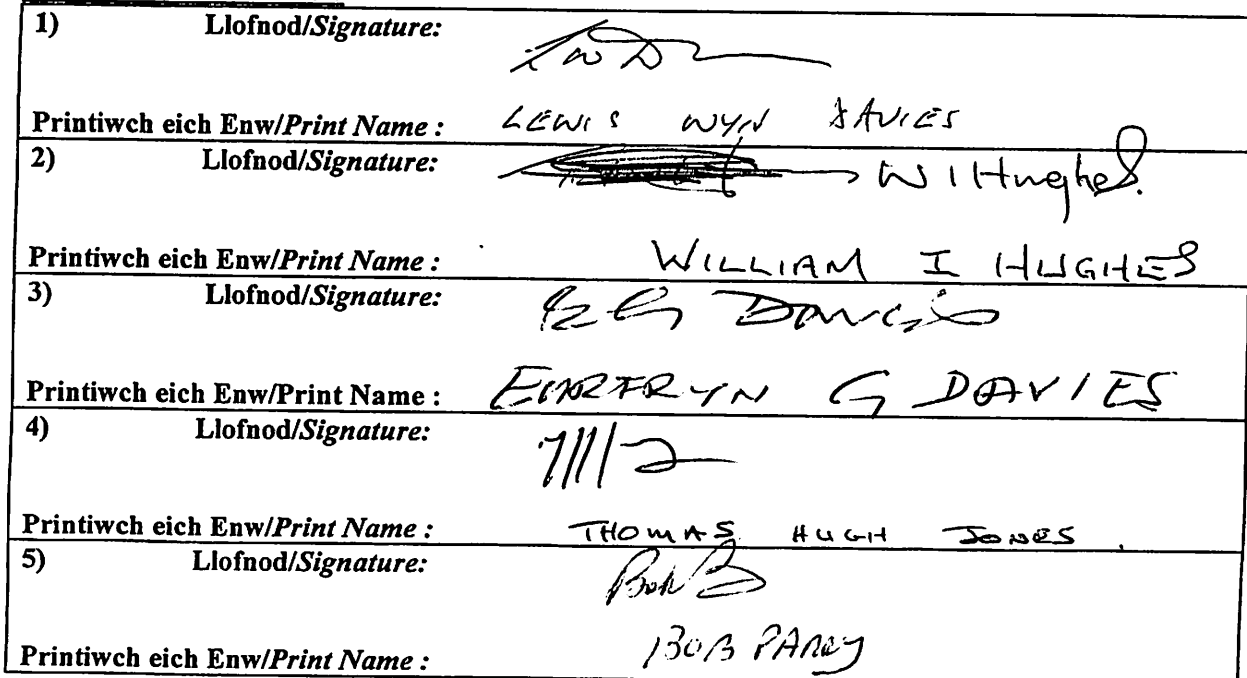 1) Llofnod/Signature:
Printiwch eich Enw/Print Name : LEWIS WYN DAVIES
2) Llofnod/Signature: W I Hughes.
Printiwch eich Enw/Print Name : WILLIAM I HUGHES
3) Llofnod/Signature: Davies
Printiwch eich Enw/Print Name : G DAVIES
4) Llofnod/Signature:
Printiwch eich Enw/Print Name : THOMAS HUGH JONES.
5) Llofnod/Signature: Bob
Printiwch eich Enw/Print Name : BOB PARRY